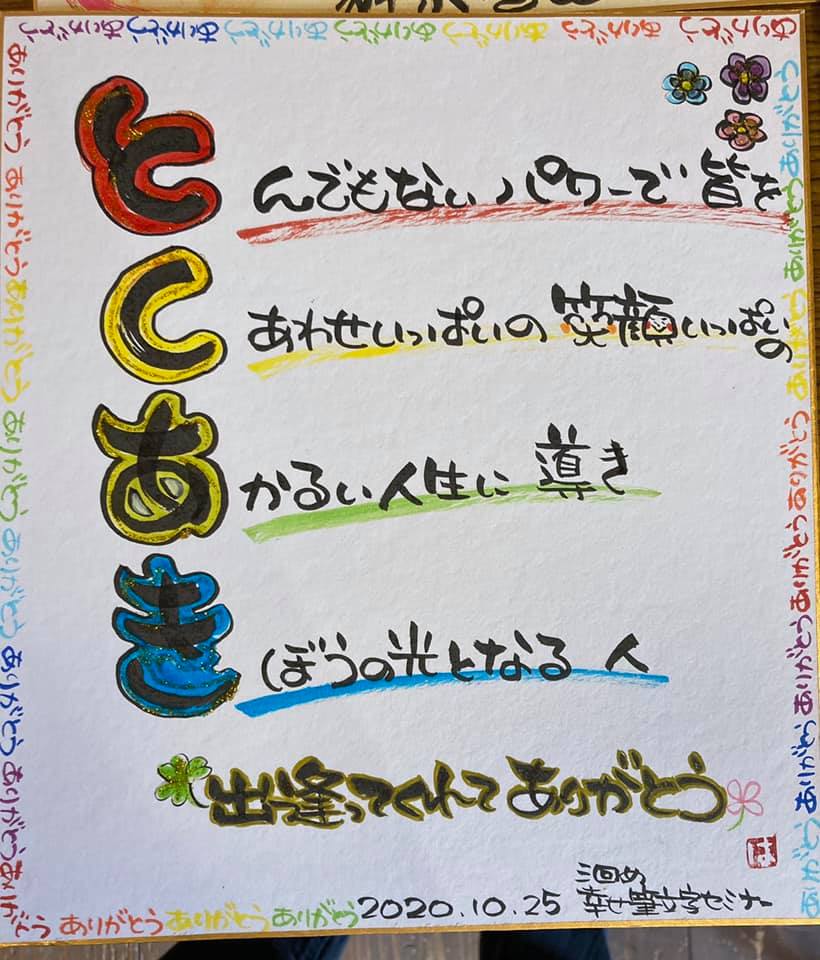 ありがとう ありがとう ありがとう ありがとう ありがとう ありがとう ありがとう
とんでもないパワーで 皆を
しあわせいっぱいの 笑顔いっぱいの
あかるい人生に 導き
きぼうの光となる 人
出逢ってくれて ありがとう
は
三回め
2020.10.25 幸せ筆文字セミナー
ありがとう ありがとう ありがとう ありがとう ありがとう ありがとう ありがとう ありがとう
ありがとう ありがとう ありがとう
ありがとう ありがとう ありがとう ありがとう ありがとう ありがとう ありがとう ありがとう